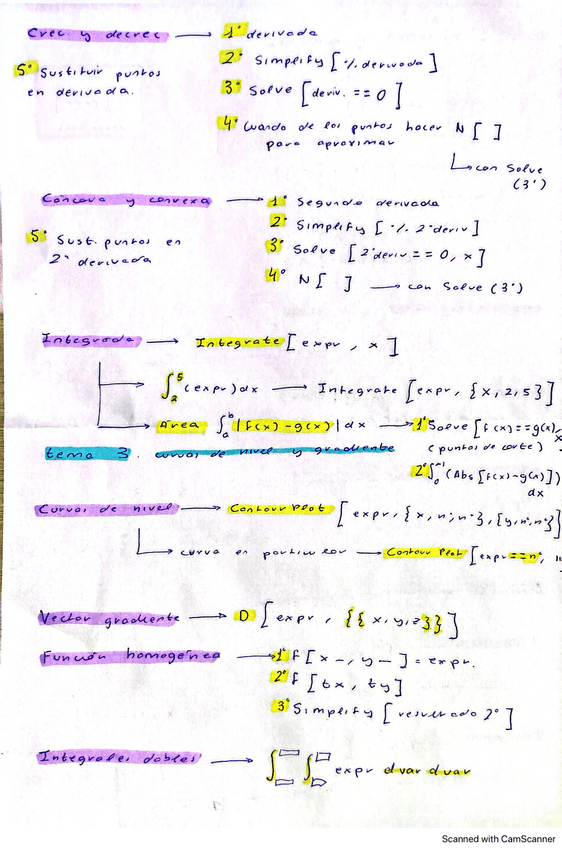 Crec. y decrec → 1º derivada
2º Simplify [%. derivada]
5º Sustituir puntos
en derivada.
3º Solve [deriv. == 0]
4º Cuando de los puntos hacer N [ ]
para aproximar
↳ con Solve
(3º)
Cóncava y convexa → 1º Segunda derivada
2º Simplify [%. 2ª deriv]
5º Sust. puntos en
2ª derivada
3º Solve [2ª deriv == 0, x]
4º N [ ] → con Solve (3º)
Integrada → Integrate [expr, x]
→ ∫₂⁵ (expr) dx → Integrate [expr, {x, 2, 5}]
→ Área ∫ₐᵇ |f(x) - g(x)| dx → 1º Solve [f(x) == g(x), x
(puntos de corte)
tema 3. curvas de nivel y gradiente
2º (Abs [f(x) - g(x)])
dx
Curvas de nivel → ContourPlot [expr, {x, nº, nº}, {y, nº, nº}]
↳ curva en particular → ContourPlot [expr == nº,
Vector gradiente → D [expr, {{x, y, z}}]
Función homogénea → 1º f [x_, y_] = expr.
2º f [tx, ty]
3º Simplify [resultado 2º]
Integrales dobles → ∫ ∫ expr dvar dvar
Scanned with CamScanner